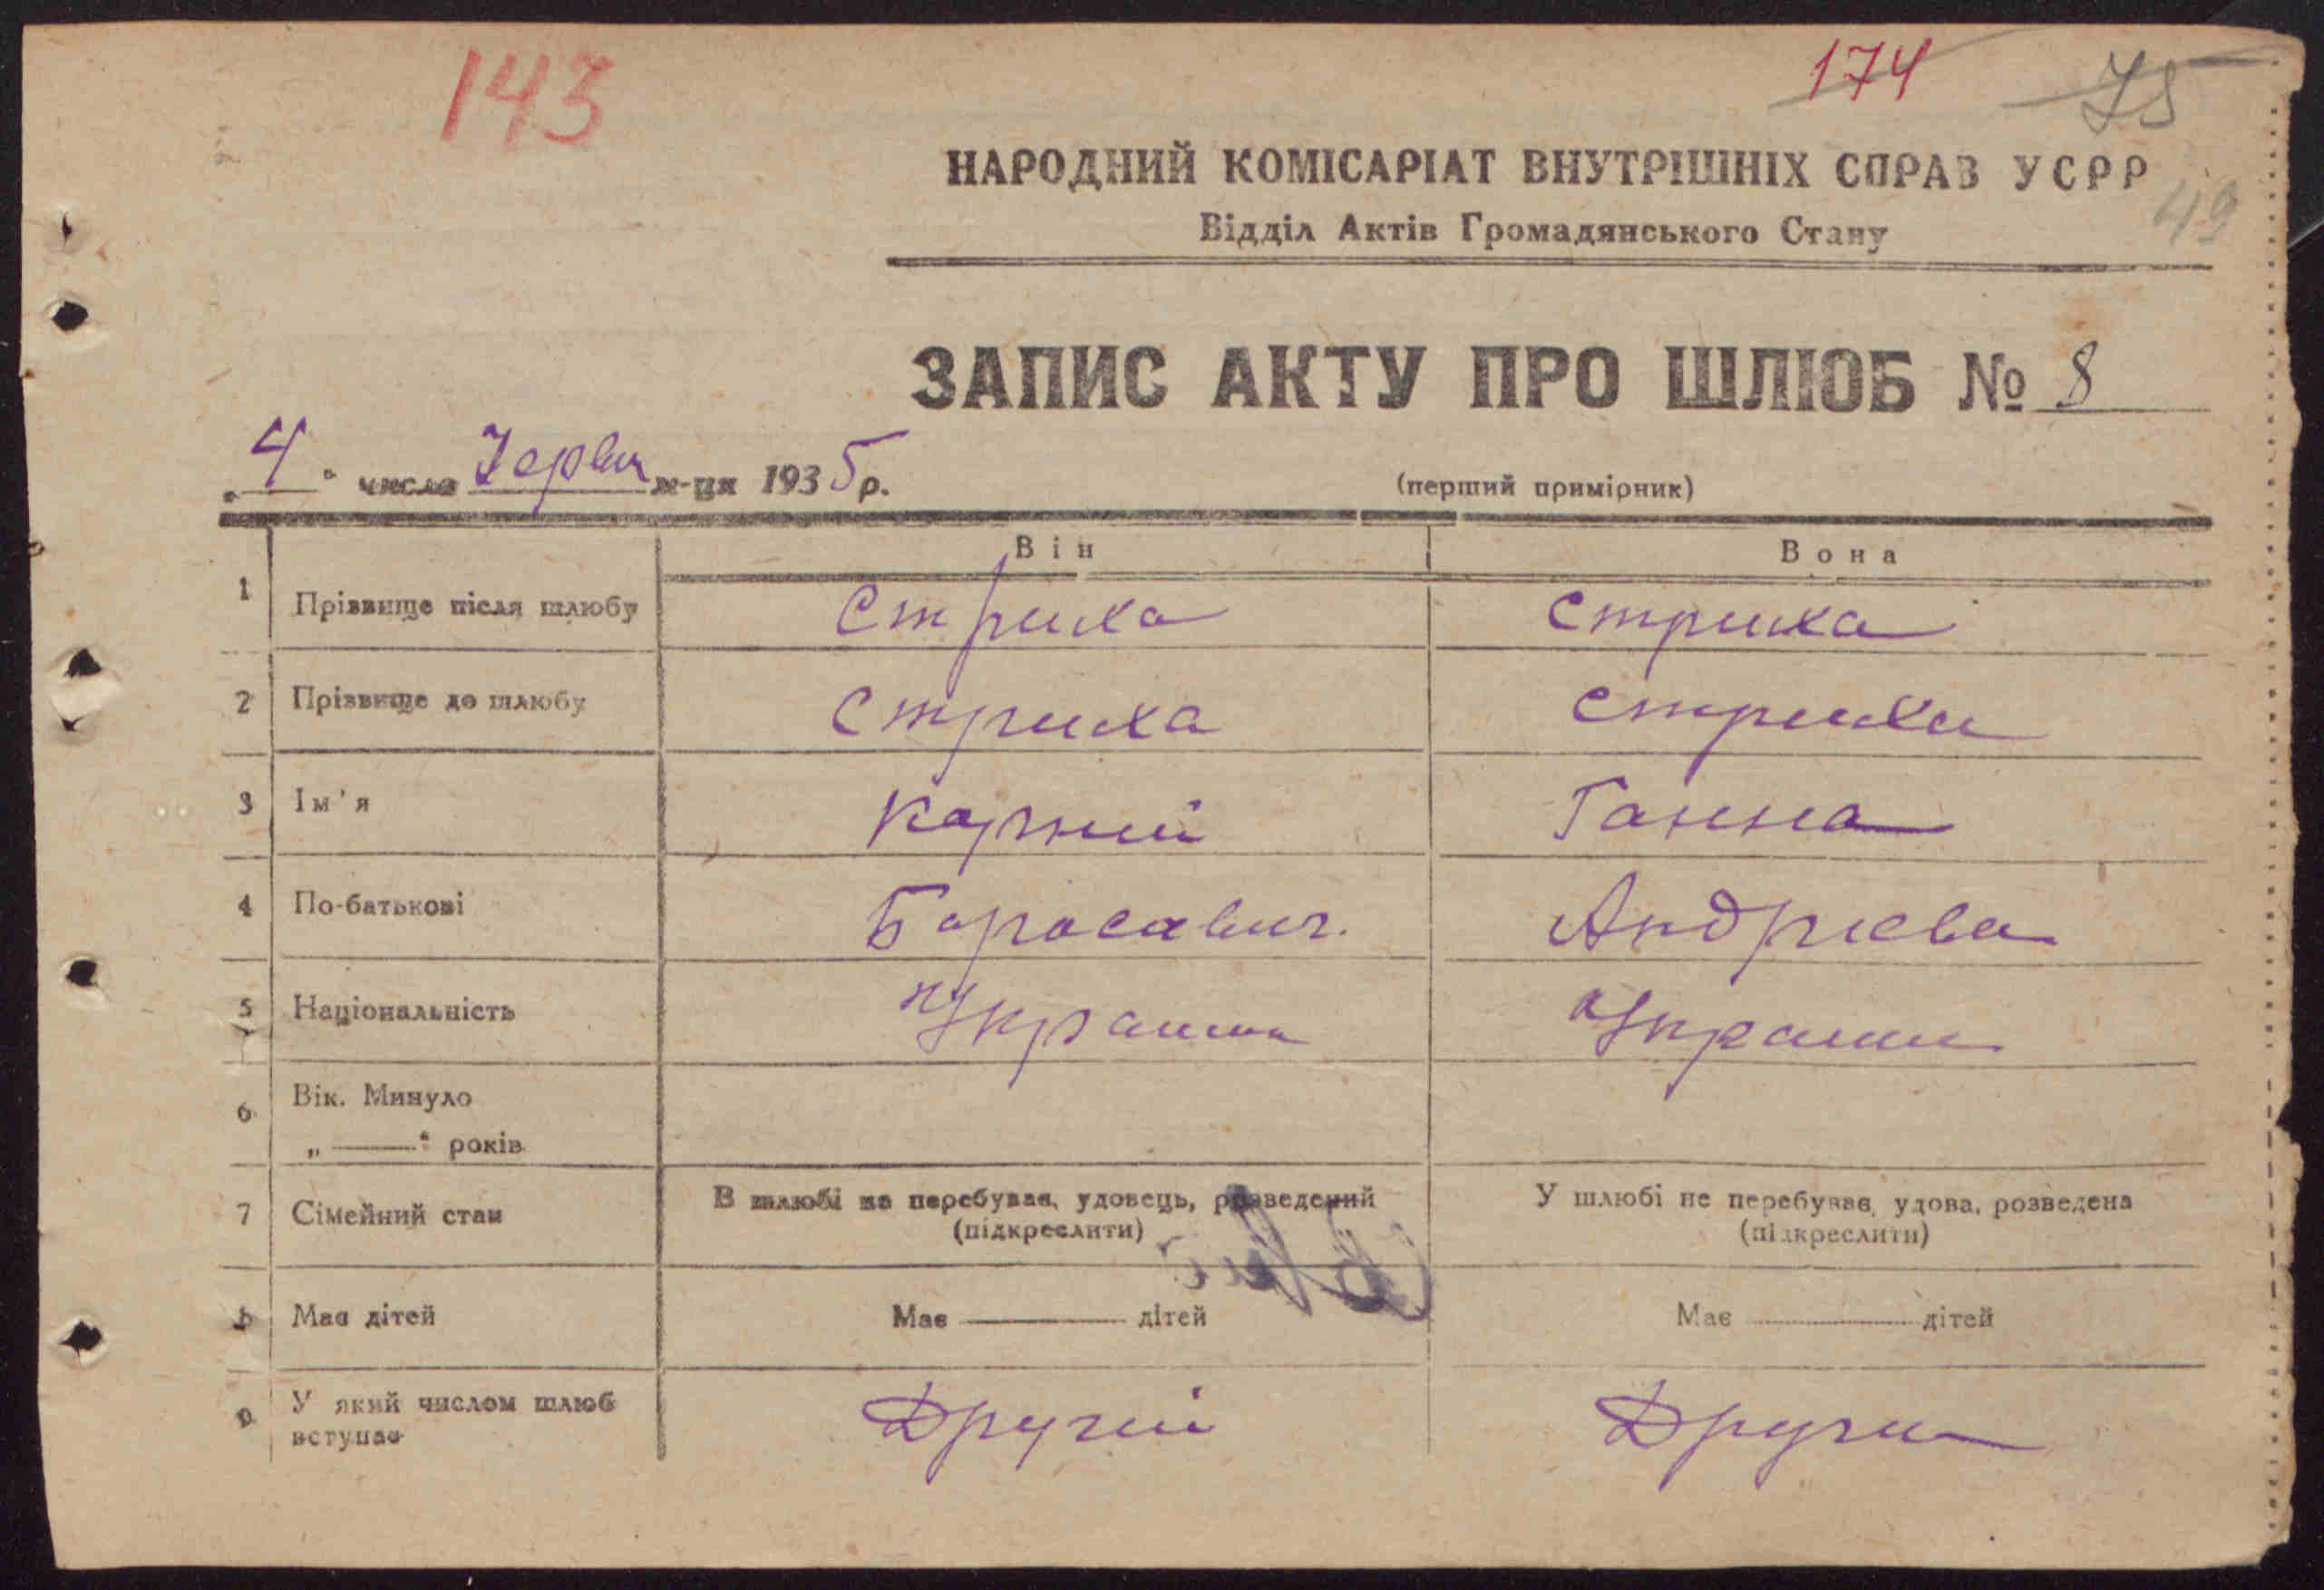 143
174
75
49
НАРОДНИЙ КОМІСАРІАТ ВНУТРІШНІХ СПРАВ УСРР
Відділ Актів Громадянського Стану
ЗАПИС АКТУ ПРО ШЛЮБ № 8
„4“ числа Червн м-ця 1935 р.
(перший примірник)
Він Вона
1 Прізвище після шлюбу Стриха Стриха
2 Прізвище до шлюбу Стриха Стриха
3 Ім'я Корній Ганна
4 По-батькові Андрієва
5 Національність
6 Вік. Минуло
„ “ років
7 Сімейний стан В шлюбі не перебував, удовець, розведений (підкреслити) У шлюбі не перебував, удова, розведена (підкреслити)
8 Має дітей Має дітей Має дітей
9 У який числом шлюб вступає Другий Други